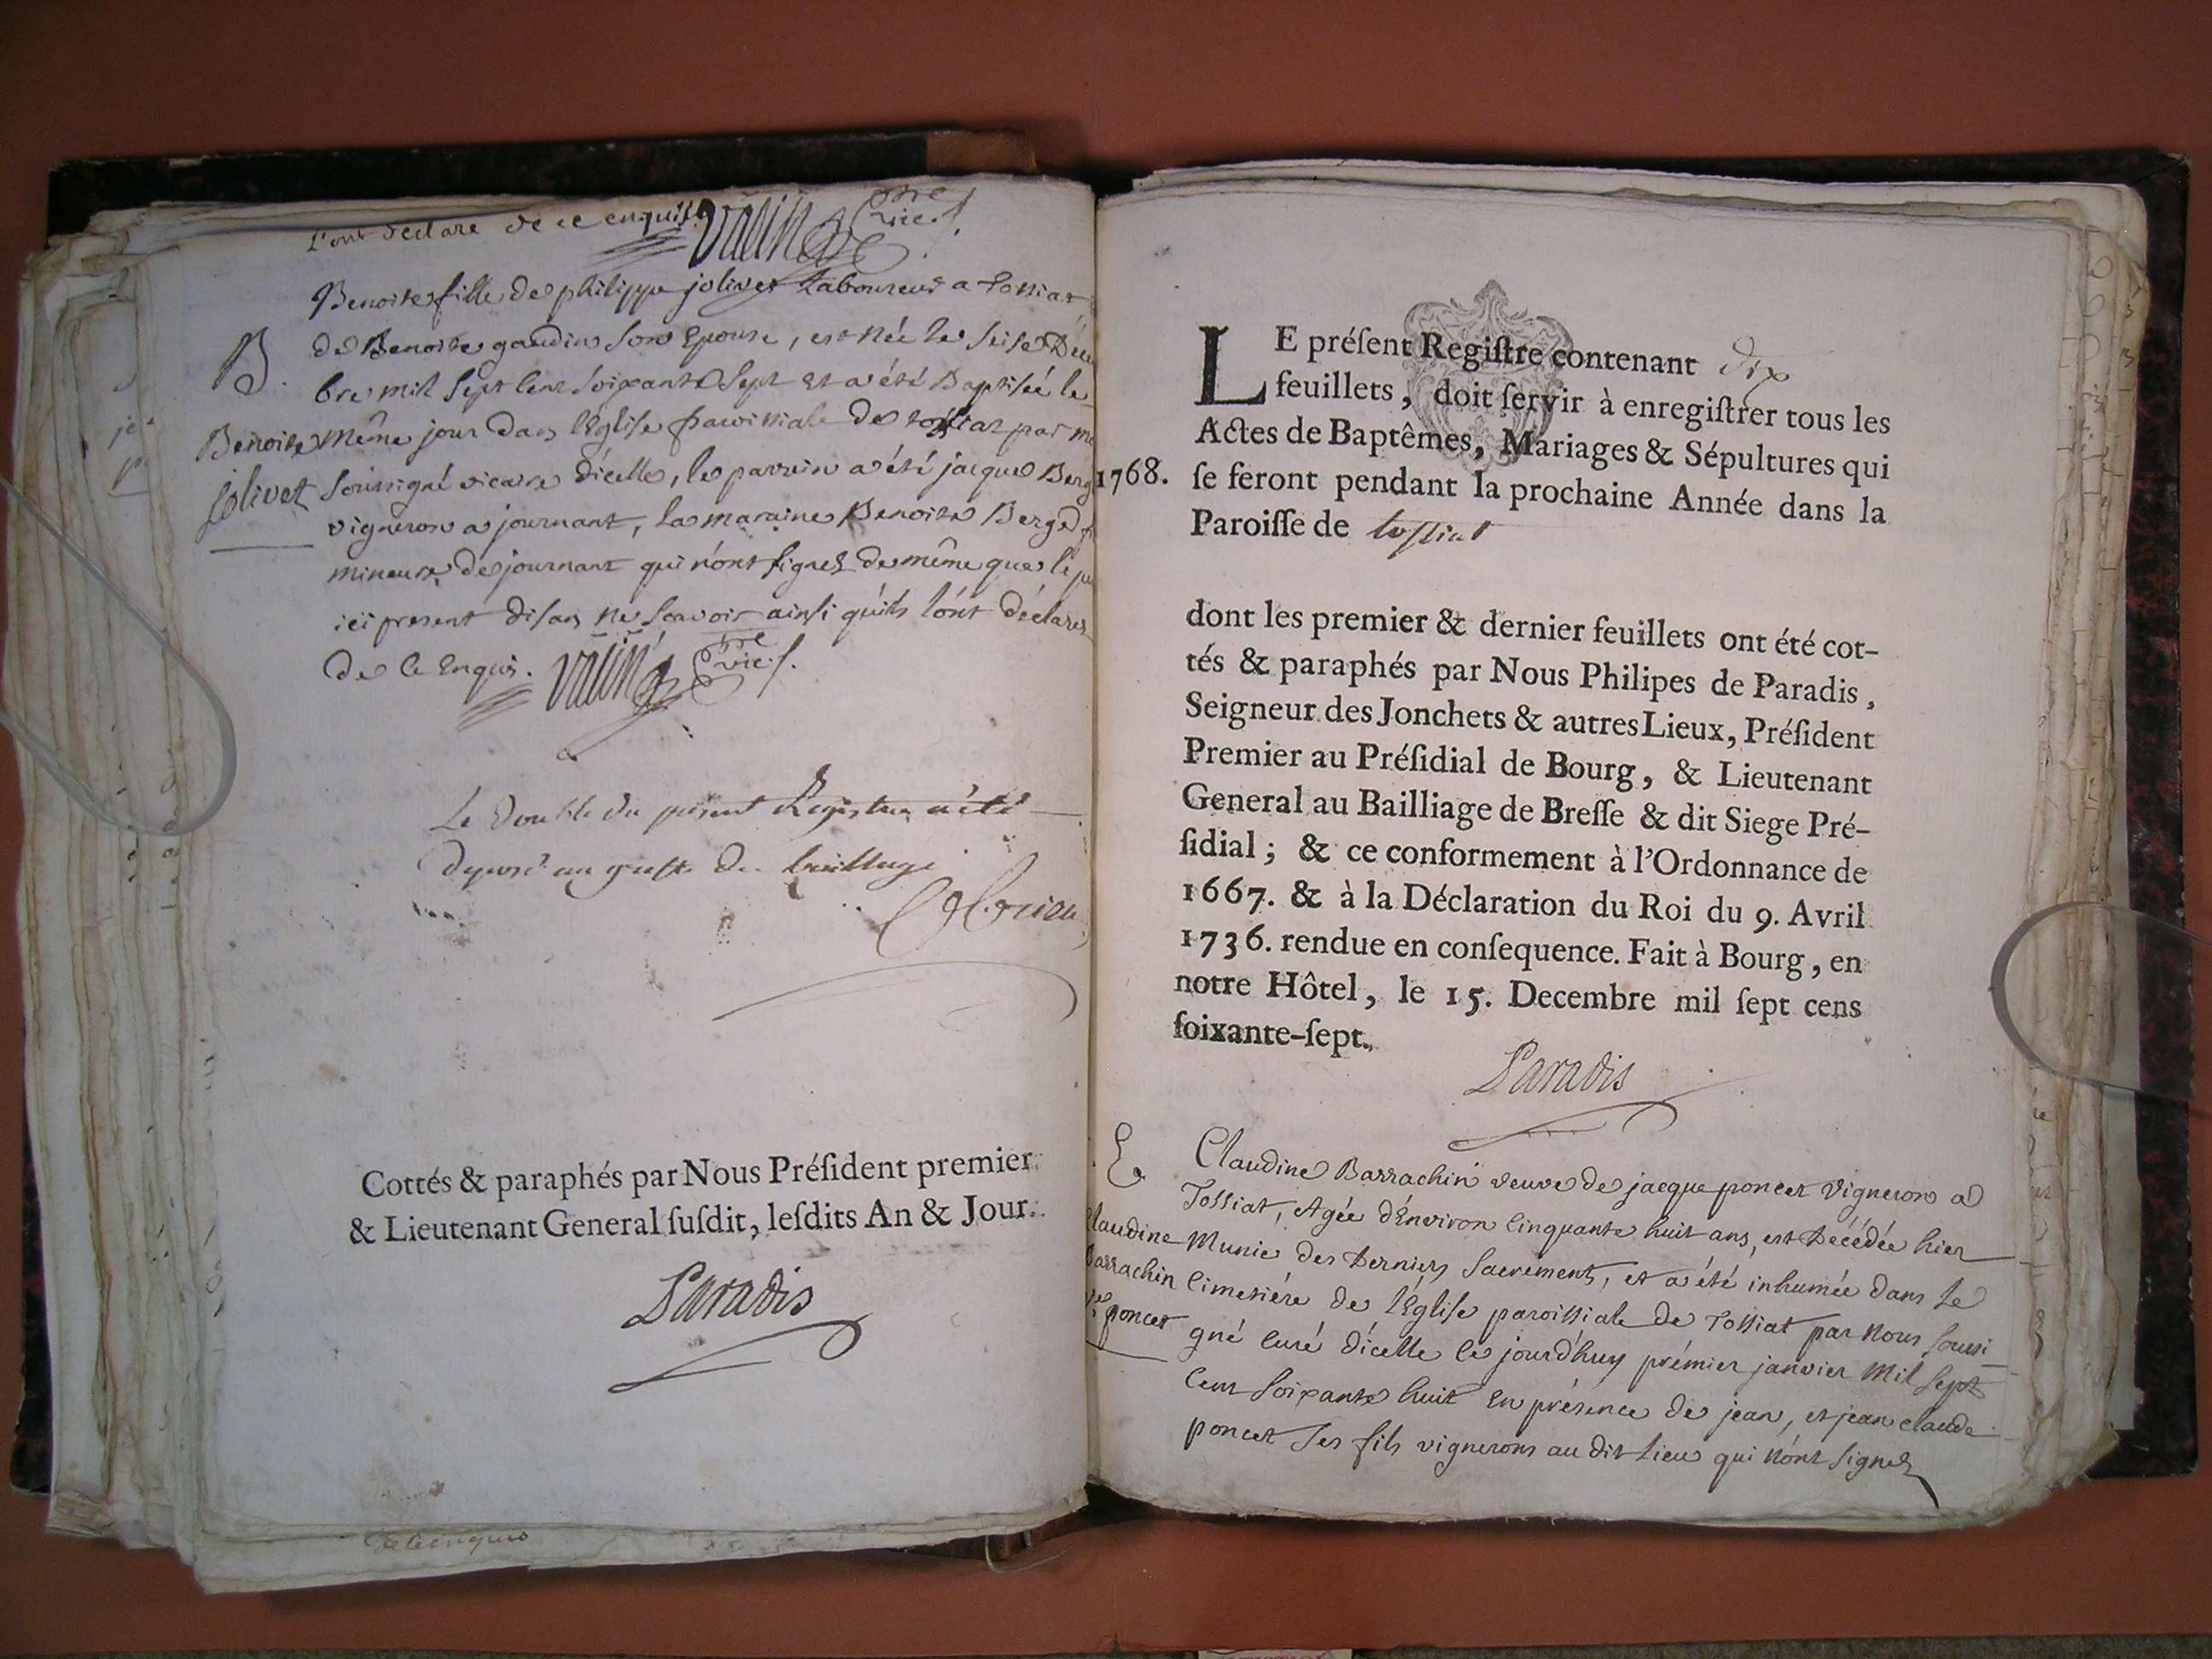 l'ont déclaré de ce enquis.
vic.
Benoite fille de philippe jolivet Laboureur a tossiat
B. de Benoite gaudin son Epouse, est née le seise Décem
bre mil sept cent soixante sept et a été Baptisée le
Benoite même jour dans l'Eglise paroissiale de tossiat par
jolivet soussigné vicaire d'icelle, le parrein a été jacque Berg
vigneron a journant, la maraine Benoite Berg
mineure de journant qui n'ont signez de même que le
ici present disan ne scavoir ainsi qu'ils l'ont déclarez
de ce Enquis. vic.
Le double du présent Registre a été
déposé au greffe du bailliage
Cottés & paraphés par Nous Préſident premier
& Lieutenant General ſuſdit, leſdits An & Jour.
Paradis
de ce enquis
LE préſent Regiſtre contenant dix
feuillets, doit ſervir à enregiſtrer tous les
Actes de Baptêmes, Mariages & Sépultures qui
1768. ſe feront pendant la prochaine Année dans la
Paroiſſe de tossiat
dont les premier & dernier feuillets ont été cot-
tés & paraphés par Nous Philipes de Paradis,
Seigneur des Jonchets & autres Lieux, Préſident
Premier au Préſidial de Bourg, & Lieutenant
General au Bailliage de Breſſe & dit Siege Pré-
ſidial; & ce conformement à l'Ordonnance de
1667. & à la Déclaration du Roi du 9. Avril
1736. rendue en conſequence. Fait à Bourg, en
notre Hôtel, le 15. Decembre mil ſept cens
ſoixante-ſept.
Paradis
Claudine Barrachin veuve de jacque poncet vigneron a
Tossiat, Agée d'Environ Cinquante huit ans, est Décédée hier
Claudine Munie des Derniers Sacrements, et a été inhumée dans le
Barrachin Cimetiére de l'Eglise paroissiale de Tossiat par nous soussi-
ve poncet gné curé d'icelle le jourd'huy prémier janvier mil sept
Cent soixante huit en présence de jean, et jean claude
poncet ses fils vignerons au dit lieu qui n'ont signez